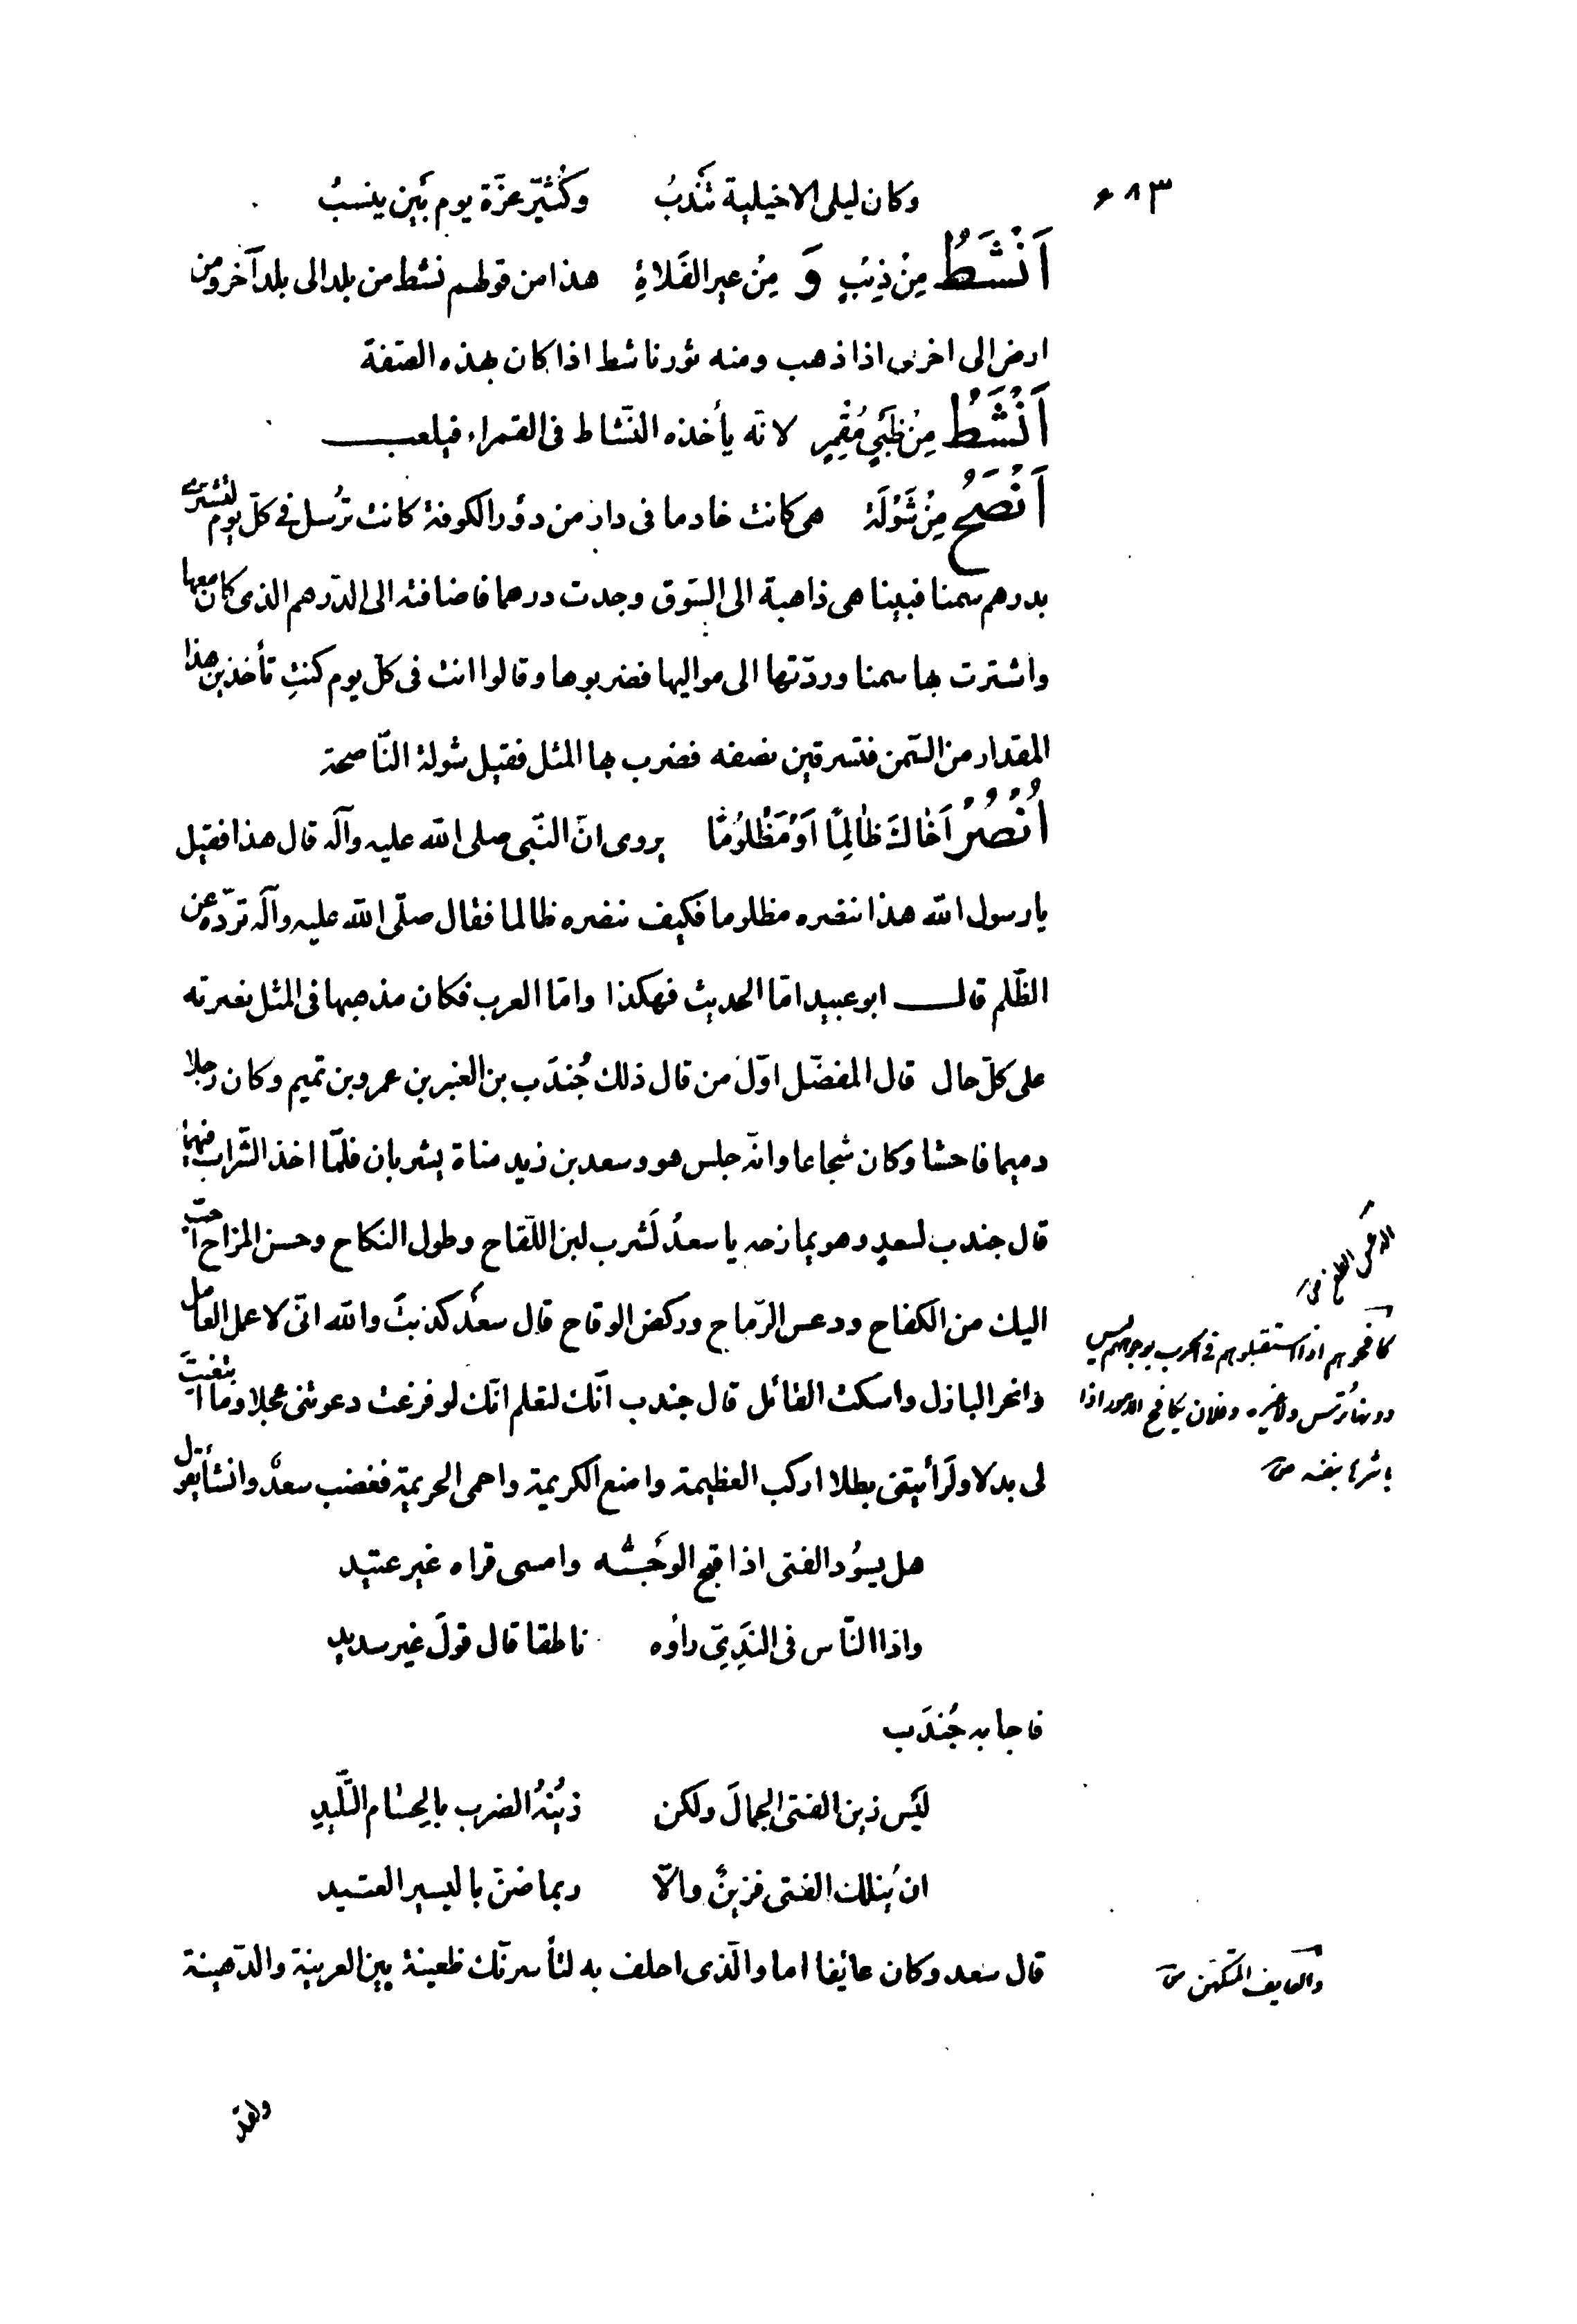 ٦٨٣
وكان ليلى الاخيلية تَندُبُ وكُثَيّر عزّة يوم بَينٍ ينسبُ
اَنْشَطُ مِنْ ذِئبٍ وَ مِنْ عيرِ الفَلاةِ هذا من قولهم نشط من بلد الى بلد آخر ومن
ارض الى اخرى اذا ذهب ومنه ثور ناشط اذا كان بهذه الصّفة
اَنْشَطُ مِنْ ظَبْيٍ مُقْمِرٍ لانّه يأخذه النّشاط فى القمراء فيلعب
اَنْصَحُ مِنْ شَوْلَةَ هى كانت خادما فى دار من دؤر الكوفة كانت تُرسل فى كلّ يوم لتشترى
بدرهم سمنا فبينا هى ذاهبة الى السّوق وجدت درهما فاضافته الى الدّرهم الذى كان معها
واشترت بها سمنا وردّتها الى مواليها فضربوها وقالوا انت فى كلّ يوم كنتِ تأخذين هذا
المقدار من السّمن فتسرقين نصفه فضرب بها المثل فقيل شولة النّاصحة
اُنْصُرْ اَخاكَ ظالِمًا اَوْ مَظْلُومًا يروى انّ النّبى صلى الله عليه وآله قال هذا فقيل
يا رسول الله هذا ننصره مظلوما فكيف ننصره ظالما فقال صلّى الله عليه وآله تردّه عن
الظّلم قال ابو عبيد امّا الحديث فهكذا وامّا العرب فكان مذهبها فى المثل نصرته
على كلّ حال قال المفضّل اوّل من قال ذلك جُندَب بن العنبر بن عمرو بن تميم وكان رجلا
دميما فاحشا وكان شجاعا وانّه جلس هو وسعد بن زيد مناة يشربان فلمّا اخذ الشّراب فيهما
قال جندب لسعدٍ وهو يمازحه يا سعدُ لَشرب لبن اللّقاح وطول النكاح وحسن المزاح احبّ
اليك من الكفاح ودعس الرّماح وركض الوقاح قال سعدٌ كذبتَ والله انّى لاعمل العامل
وانحر البازل واسكت القائل قال جندب انّك لتعلم انّك لو فزعت دعوتنى عجلا وما ابتغيتَ
لى بدلا ولَرأيتنى بطلا اركب العظيمة وامنع الكريمة واحمى الحريمة فغضب سعدٌ وانشأ يقول
هل يسوُد الفتى اذا قبح الوجـ ـه وامسى قراه غير عتيد
واذا النّاس فى النَدِىّ رأوه ناطقا قال قولَ غير سديدِ
فاجابه جُندَب
لَيْس زين الفتى الجمالَ ولكن زَيْنُهُ الضرب بالحسام التَّليدِ
ان يُنلك الفتى فزينٌ والّا ربما ضنّ باليسير العتيد
قال سعد وكان عايفا اما والّذى احلف به لتأسرنّك ظعينة بين العرينة والدّهينة
كافحوهم اذا استقبلوهم فى الحرب بوجوههم ليس
دونها ترس ولا غيره وفلان يكافح الامور اذا
باشرها بنفسه ص
والعايف المتكهّن ص
ولقد